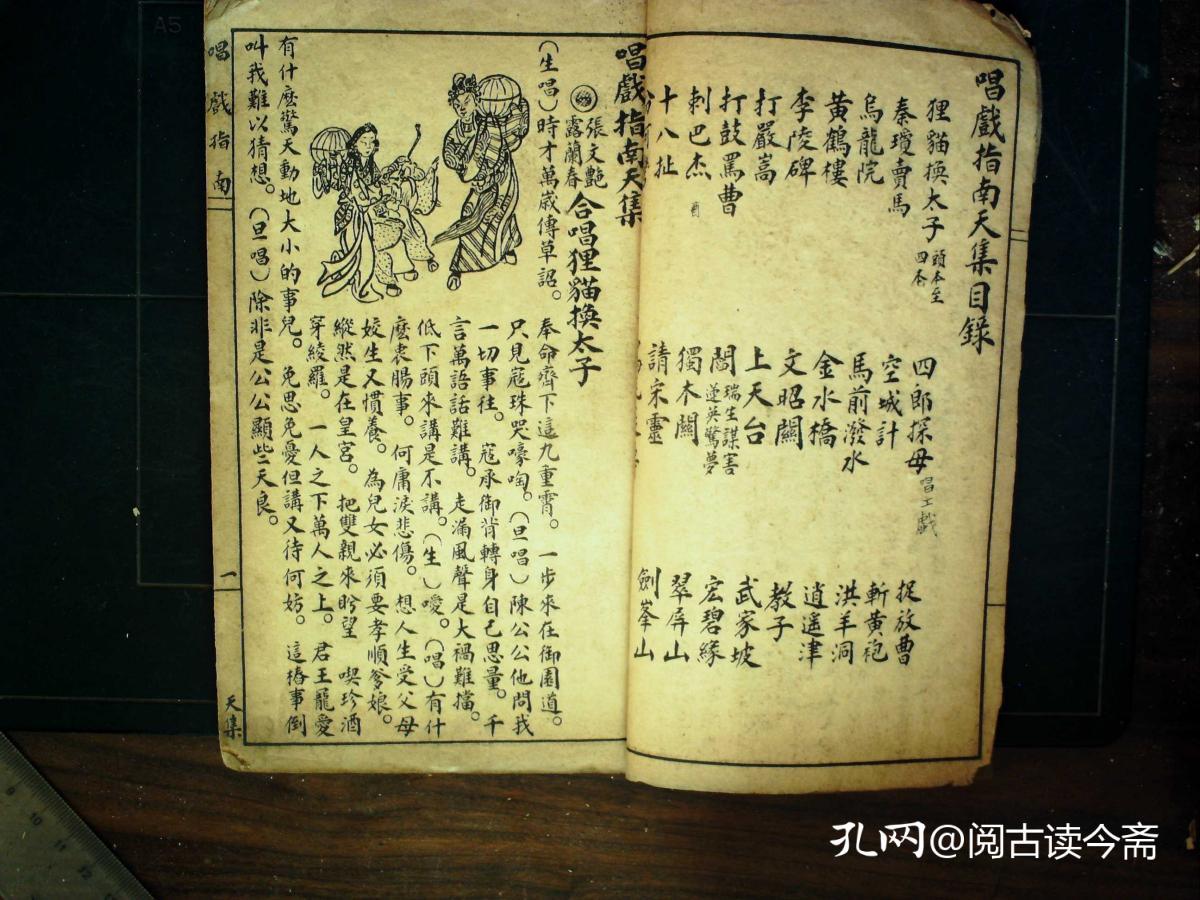 唱戲指南天集目錄
狸貓換太子 頭本至四本
秦瓊賣馬
烏龍院
黃鶴樓
李陵碑
打嚴嵩
打鼓罵曹
刺巴杰
十八扯
四郎探母 唱工戲
空城計
馬前潑水
金水橋
文昭關
上天台
閻瑞生謀害 蓮英驚夢
獨木關
請宋靈
捉放曹
斬黃袍
洪羊洞
逍遙津
教子
武家坡
宏碧緣
翠屏山
劍峯山
唱戲指南天集
張文艷
露蘭春
合唱狸貓換太子
(生唱)時才萬歲傳草詔。奉命齊下這九重霄。一步來在御園道。
只見寇珠哭嚎啕。(旦唱)陳公公他問我
一切事往。寇承御背轉身自己思量。千
言萬語話難講。走漏風聲是大禍難擋。
低下頭來講是不講。(生)噯。(唱)有什
麽衷腸事。何庸淚悲傷。想人生受父母
姣生又慣養。為兒女必須要孝順爹娘。
縱然是在皇宮。把雙親來盼望 喫珍酒
穿綾羅。一人之下萬人之上。君王寵愛
有什麽驚天動地大小的事兒。免思免憂但講又待何妨。這樁事倒
叫我難以猜想。(旦唱)除非是公公顯些天良。
唱戲指南
一
天集
A5
9
10
11
12
孔网@阅古读今斋